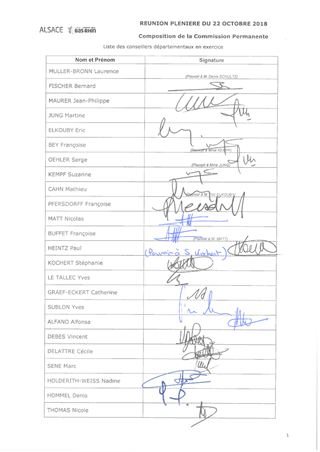 ALSACE BAS-RHIN
REUNION PLENIERE DU 22 OCTOBRE 2018
Composition de la Commission Permanente
Liste des conseillers départementaux en exercice
Nom et Prénom Signature
MULLER-BRONN Laurence (Pouvoir à M. Denis SCHULTZ)
FISCHER Bernard
MAURER Jean-Philippe
JUNG Martine
ELKOUBY Eric
BEY Françoise (Pouvoir à
OEHLER Serge (Pouvoir à Mme JUNG)
KEMPF Suzanne
CAHN Mathieu
PFERSDORFF Françoise
MATT Nicolas
BUFFET Françoise (Pouvoir à M. MATT)
HEINTZ Paul (Pouvoir à S. Kochert)
KOCHERT Stéphanie
LE TALLEC Yves
GRAEF-ECKERT Catherine
SUBLON Yves
ALFANO Alfonsa
DEBES Vincent
DELATTRE Cécile
SENE Marc
HOLDERITH-WEISS Nadine
HOMMEL Denis
THOMAS Nicole
1